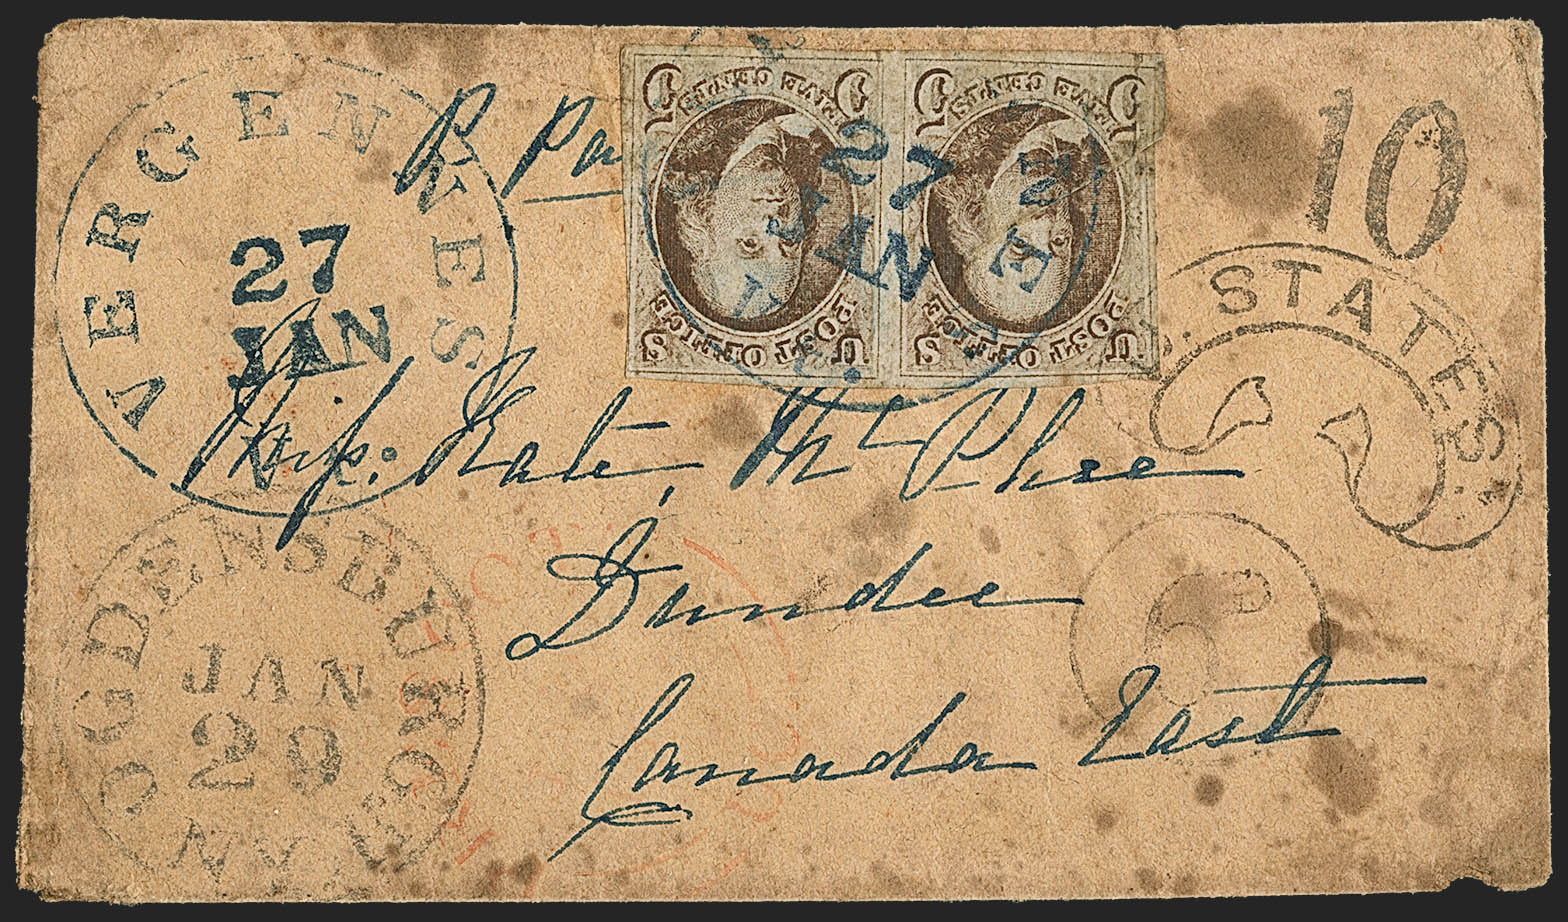 VERGENNES
27
JAN
P Pa
FIVE CENTS
5 5
POST OFFICE
U S
FIVE CENTS
5 5
POST OFFICE
U S
27
JAN
10
STATES.
Miss: Kate, Mc Phee
Dundee
Canada East
OGDENSBURGH
JAN
29
N.Y.
6